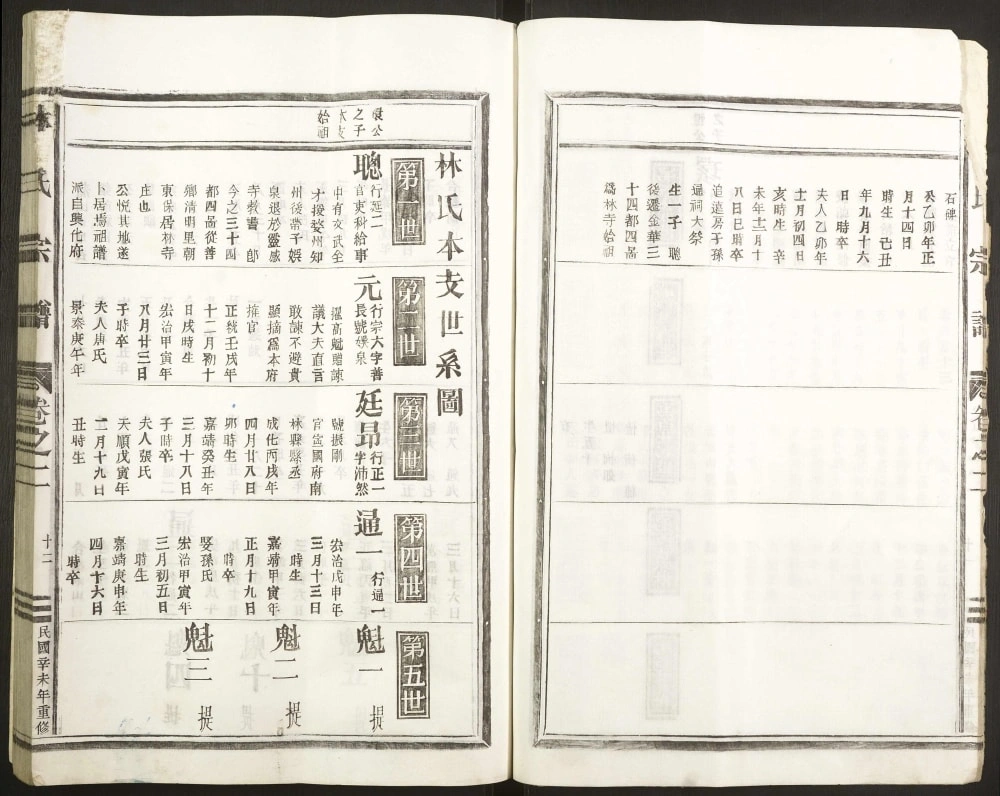 石碑
公乙卯年正
月十四日
時生 己丑
年九月十六
日 時卒
夫人乙卯年
十月初四日
亥時生 辛
未年十二月十
八日巳時卒
追遠房子孫
通祠大祭
生一子 聰
後遷金華三
十四都四畐
爲林寺始祖
宗譜
卷之二
民國辛未年重修
之子
始祖
林氏本支世系圖
第一世
聰
行廷二
官吏科給事
中有文武全
才授婺州知
州後帶子娱
泉退於靈感
寺教書 郎
今之三十四
都四畐從善
鄉清明里朝
東保居林寺
庄也
公悦其地遂
卜居焉祖譜
派自興化府
第二世
元
行宗大字善
長號娱泉
邏高貲贈諫
議大夫直言
敢諫不避貴
顯摘爲本府
推官
正統壬戌年
十二月初十
日戌時生
弘治甲寅年
八月廿三日
子時卒
夫人唐氏
景泰庚午年
第三世
廷昂
行正一
字沛然
號振剛
官宣國府南
林縣縣丞
成化丙戌年
四月廿八日
卯時生
嘉靖癸丑年
三月十八日
子時卒
夫人張氏
天順戊寅年
二月十九日
丑時生
第四世
逼一
行逼一
弘治戊申年
三月十三日
時生
嘉靖甲寅年
正月十九日
時卒
娶孫氏
弘治甲寅年
三月初五日
時生
嘉靖庚申年
四月十六日
時卒
第五世
魁一
提
魁二
提
魁三
提
林氏宗譜
卷之二
十二
民國辛未年重修